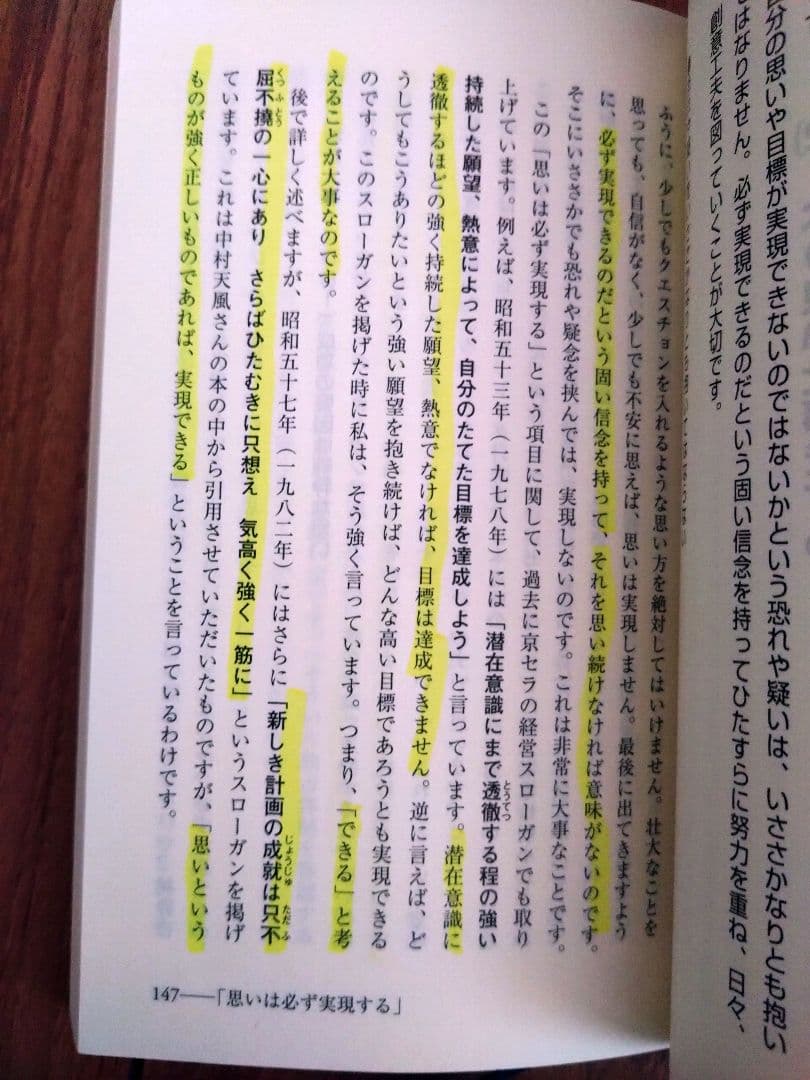 分の思いや目標が実現できないのではないかという恐れや疑いは、いささかなりとも抱い
はなりません。必ず実現できるのだという固い信念を持ってひたすらに努力を重ね、日々、
創意工夫を図っていくことが大切です。
ふうに、少しでもクエスチョンを入れるような思い方を絶対してはいけません。壮大なことを
思っても、自信がなく、少しでも不安に思えば、思いは実現しません。最後に出てきますよう
に、必ず実現できるのだという固い信念を持って、それを思い続けなければ意味がないのです。
そこにいささかでも恐れや疑念を挟んでは、実現しないのです。これは非常に大事なことです。
この「思いは必ず実現する」という項目に関して、過去に京セラの経営スローガンでも取り
上げています。例えば、昭和五十三年（一九七八年）には「潜在意識にまで透徹する程の強い
とうてつ
持続した願望、熱意によって、自分のたてた目標を達成しよう」と言っています。潜在意識に
透徹するほどの強く持続した願望、熱意でなければ、目標は達成できません。逆に言えば、ど
うしてもこうありたいという強い願望を抱き続けば、どんな高い目標であろうとも実現できる
のです。このスローガンを掲げた時に私は、そう強く言っています。つまり、「できる」と考
えることが大事なのです。
後で詳しく述べますが、昭和五十七年（一九八二年）にはさらに「新しき計画の成就は只不
じょうじゅ ただ ふ
屈不撓の一心にあり さらばひたむきに只想え 気高く強く一筋に」というスローガンを掲げ
くつ ふ とう
ています。これは中村天風さんの本の中から引用させていただいたものですが、「思いという
ものが強く正しいものであれば、実現できる」ということを言っているわけです。
147──「思いは必ず実現する」